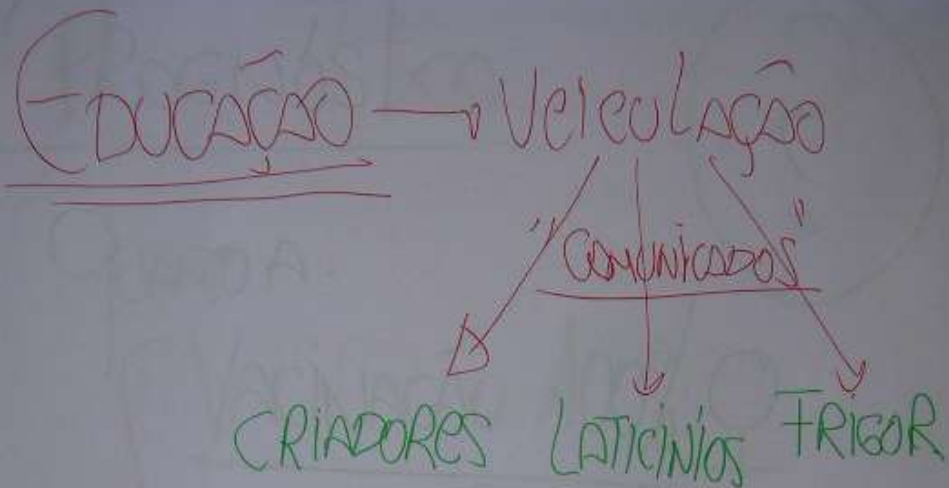 EDUCAÇÃO → VEICULAÇÃO
"COMUNICADOS"
CRIADORES LATICÍNIOS FRIGOR